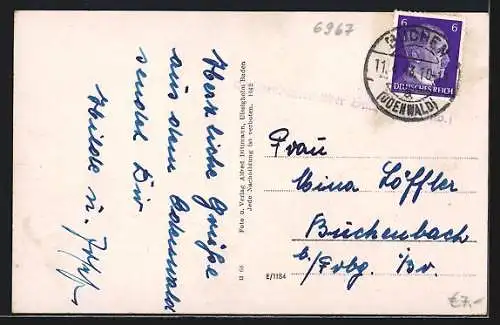 6967
Herzliche Grüße
aus dem Odenwald
sendet Dir
Hilde u.
Foto u. Verlag Alfred Hittmann, Uissigheim Baden
Jede Nachbildung ist verboten. 1942
H 65
E/1184
6 6
DEUTSCHES REICH
BUCHEN
11.
(ODENWALD)
Frau
Mina Löffler
Buchenbach
b/Frbg. i/Br.
€7.-